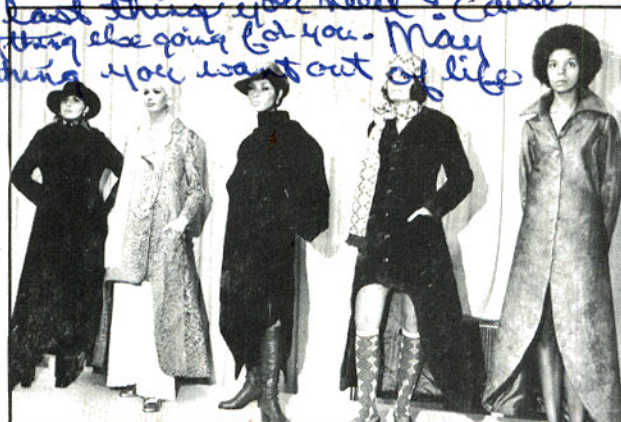 last thing you need. Cause
thing else going for you. May
thing you want out of life